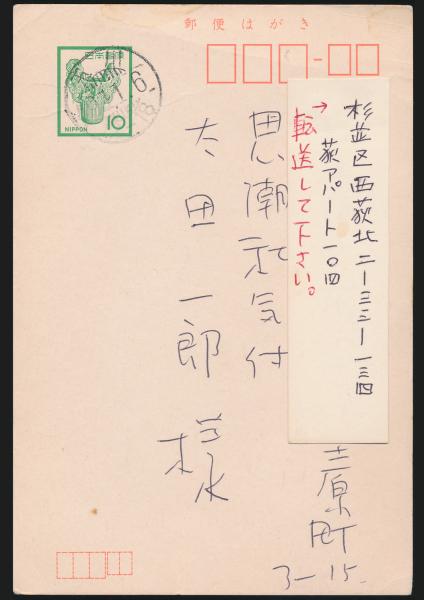 郵便はがき
日本郵便
NIPPON
10
杉並区西荻北二ー三三ー一三四
荻アパート一〇四
→転送して下さい。
原町
3-15.
思潮社気付
太田一郎様